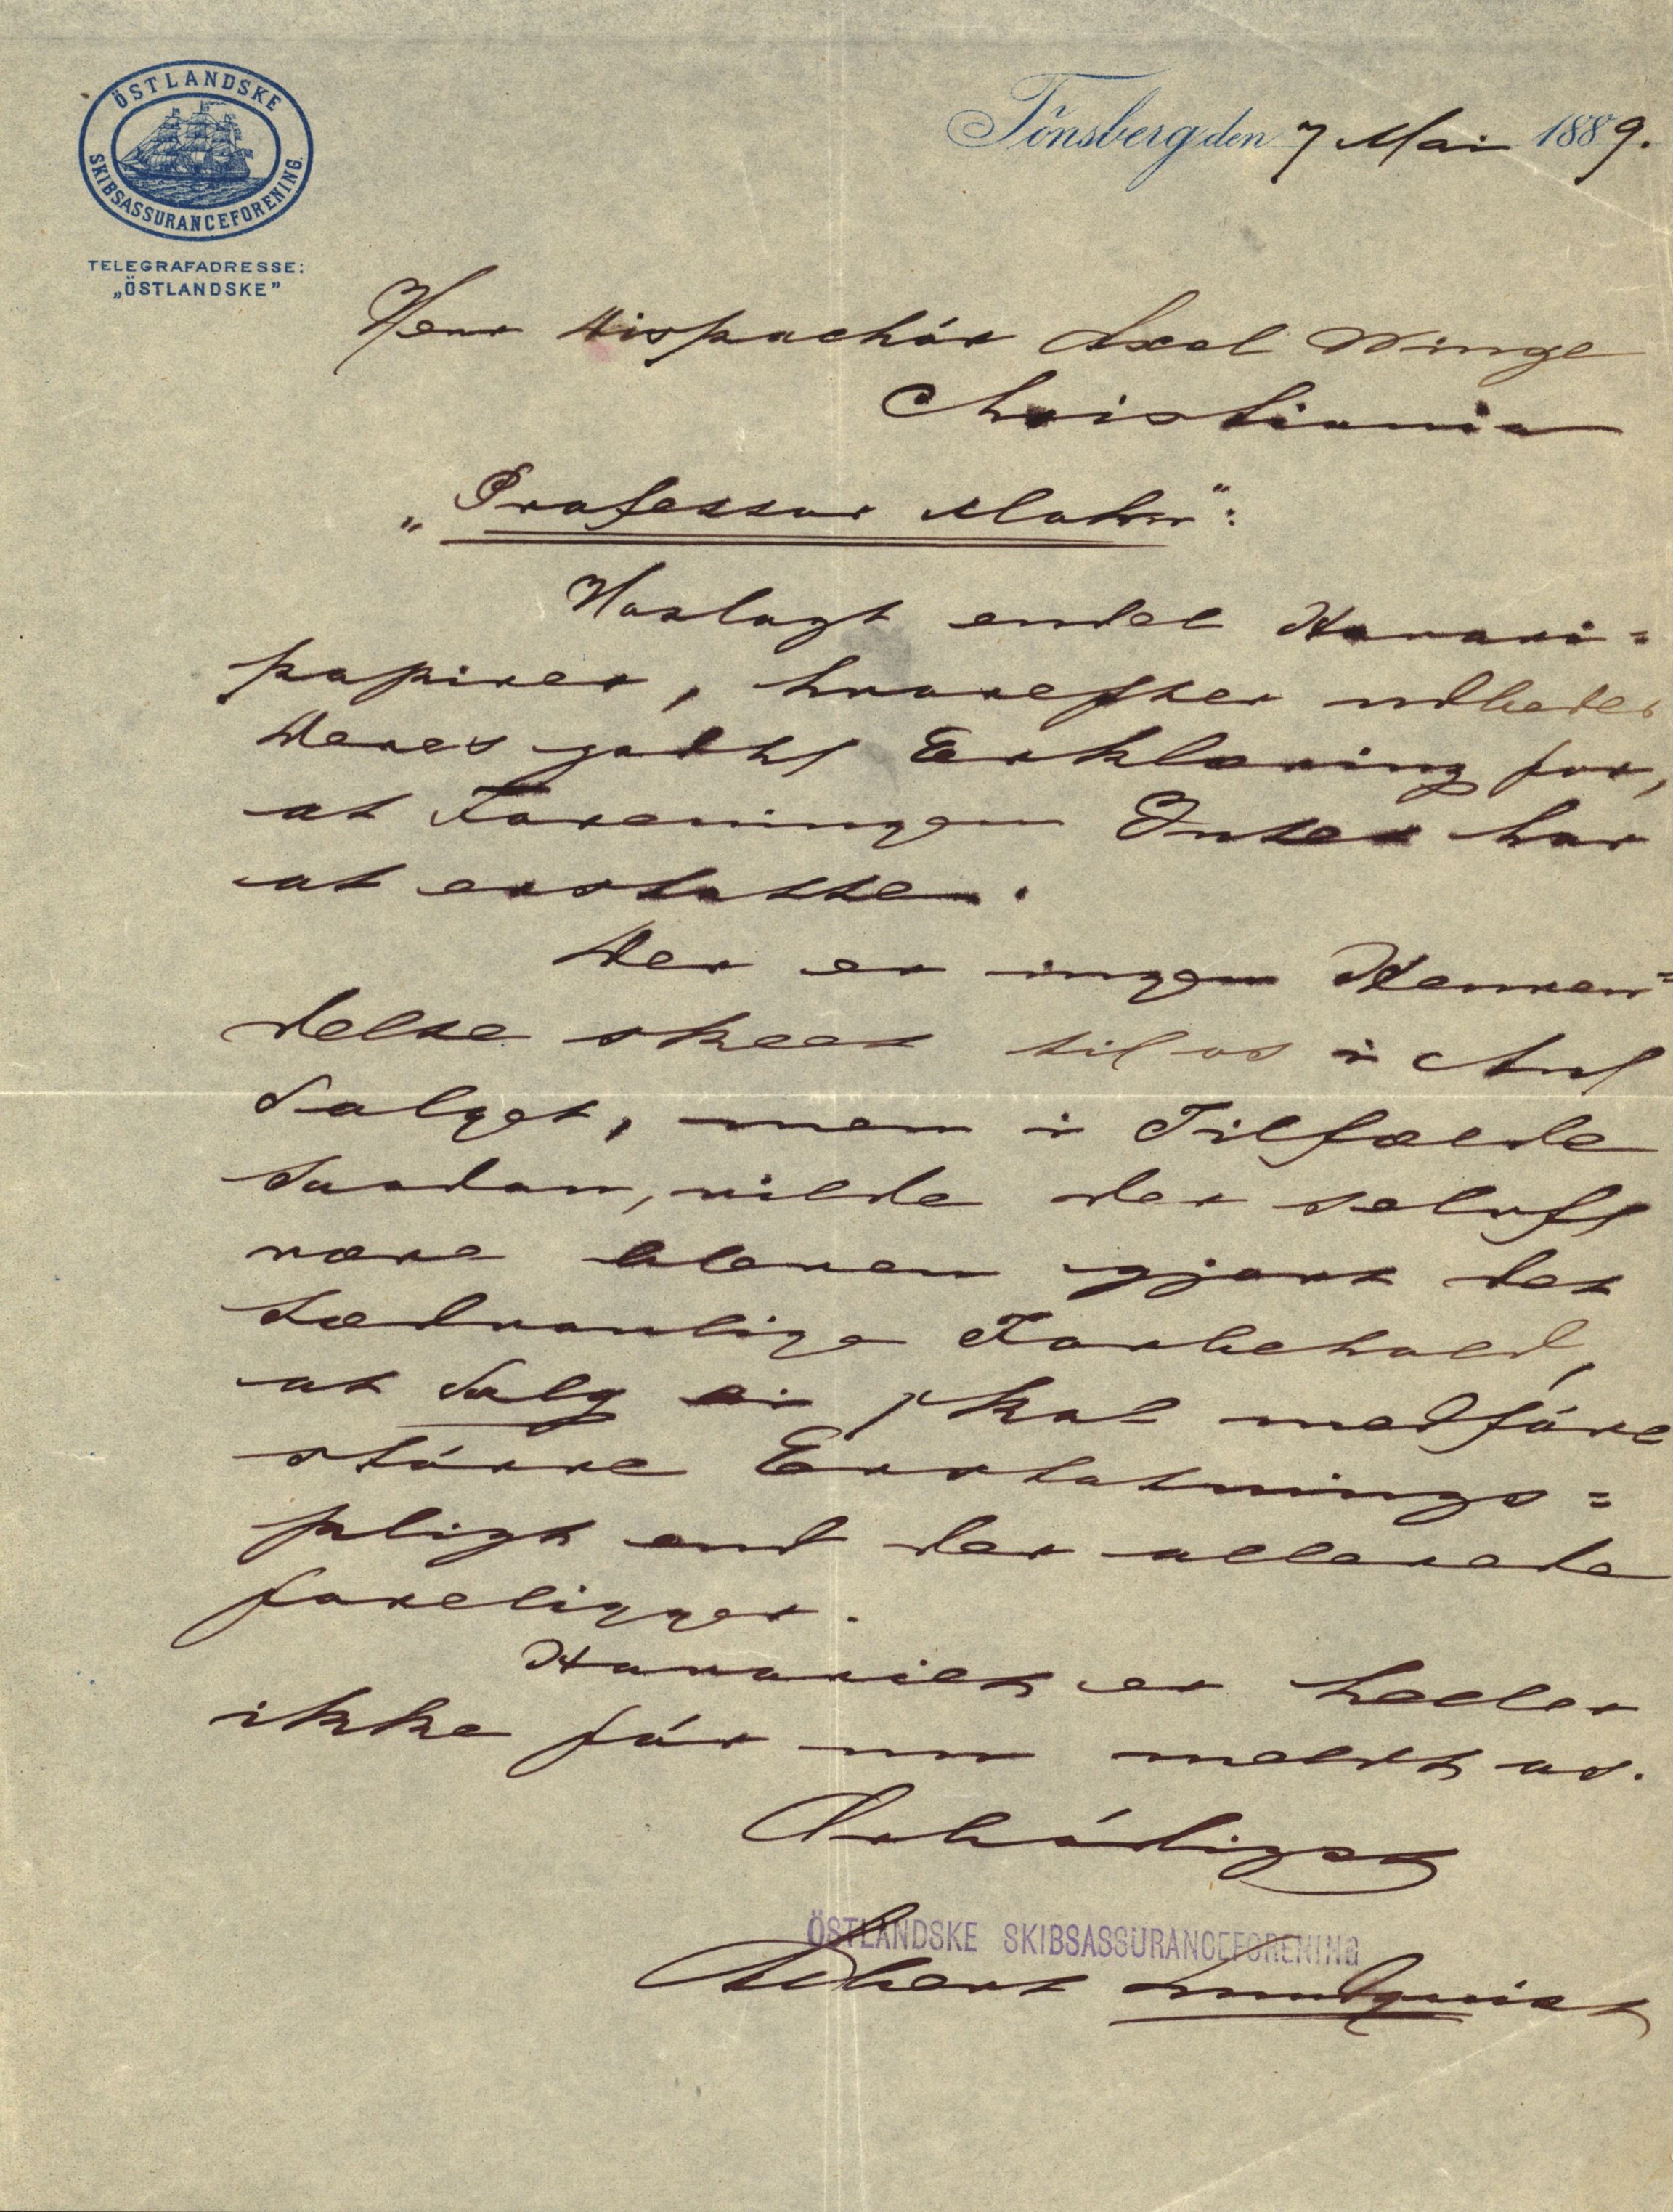 ÖSTLANDSKE
SKIBSASSURANCEFORENING.
TELEGRAFADRESSE:
„ÖSTLANDSKE”
Tönsberg den 7 Mai 1889.
Herr Dispachör Axel Winge
Christiania
„Professor Mohn":
Hoslagt endel Havari=
papirer, hvorefter udbedes
Deres godhl Erklæring for,
at Foreningen Intet har
at erstatte.
Der er ingen Henven=
delse skeet til os i Anl
Salget, men i Tilfælde
Saadan, vilde der selvfl
være bleven gjort det
Sædvanlige Forbehold,
at Salg ei skal medföre
större Erstatnings=
pligt end der allerede
foreligger.
Havariet er heller
ikke för nu meldt os.
Ærbödigst
ÖSTLANDSKE SKIBSASSURANCEFORENING
Albert Lundquist